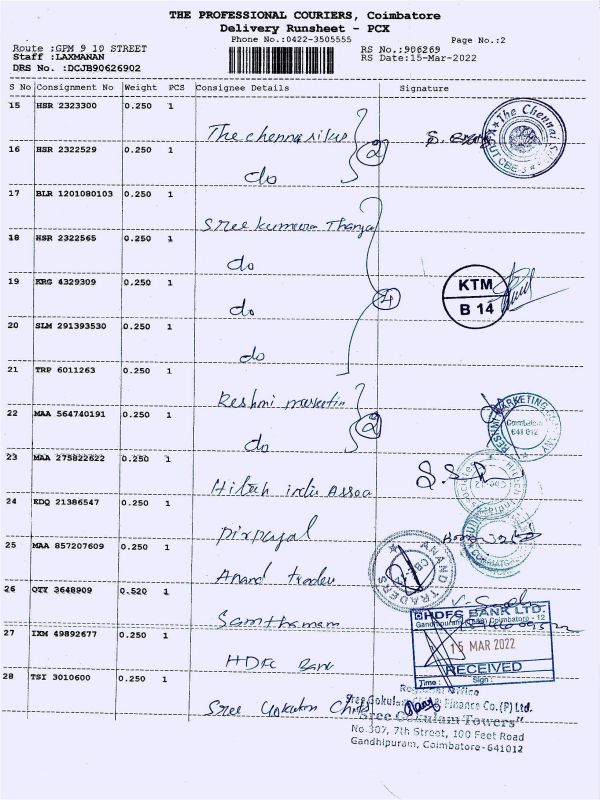 THE PROFESSIONAL COURIERS, Coimbatore
Delivery Runsheet - PCX
Phone No.:0422-3505555
Page No.:2
Route :GPM 9 10 STREET
Staff :LAXMANAN
DRS No. :DCJB90626902
RS No.:906269
RS Date:15-Mar-2022
S No Consignment No Weight PCS Consignee Details Signature
15 HSR 2323300 0.250 1 The chennai silks
16 HSR 2322529 0.250 1 do
2
The Chennai
CBE
17 BLR 1201080103 0.250 1 Sree kumara Thanga
18 HSR 2322565 0.250 1 do
19 KRG 4329309 0.250 1 do
20 SLM 291393530 0.250 1 do
4
KTM
B 14
21 TRP 6011263 0.250 1 Reshmi marketin
22 MAA 564740191 0.250 1 do
2
RESHMI MARKETING
Coimbatore
641 012
23 MAA 275822622 0.250 1 Hitech india Assoa
24 EDQ 21386547 0.250 1
25 MAA 857207609 0.250 1 Anand trader
ANAND TRADERS
26 QTY 3648909 0.520 1
27 IXM 49892677 0.250 1 HDFC Bank
HDFC BANK LTD.
Gandhipuram Coimbatore - 12
15 MAR 2022
RECEIVED
Time : Sign :
28 TSI 3010600 0.250 1 Sree Gokulam Chits
Office
Sree Gokulam Finance Co.(P) Ltd.
"Sree Gokulam Towers"
No.307, 7th Street, 100 Feet Road
Gandhipuram, Coimbatore-641012